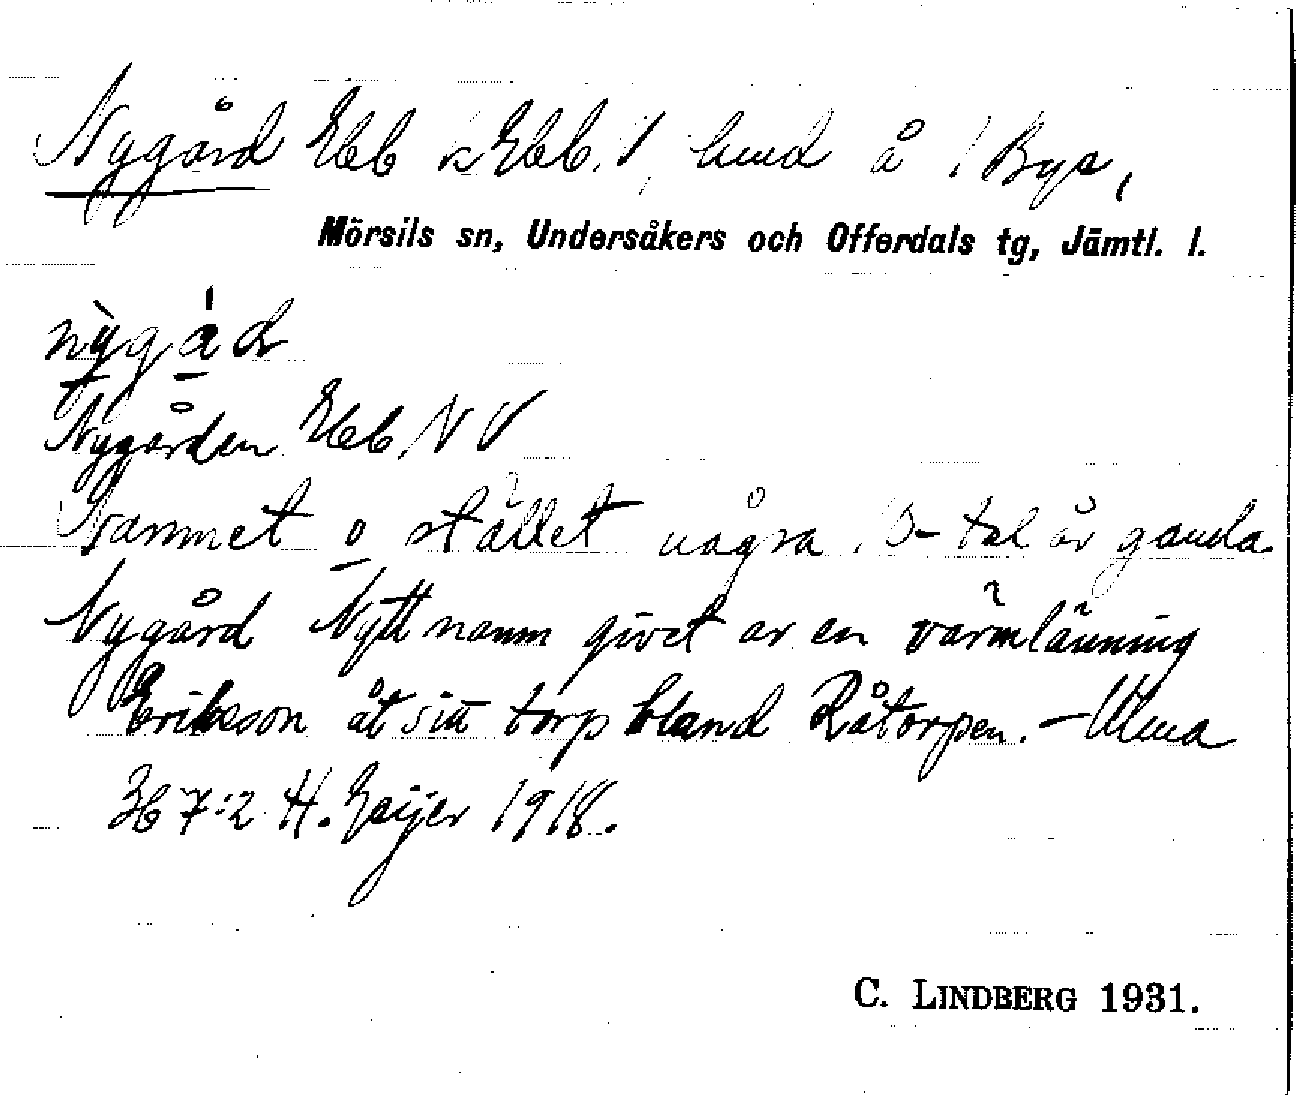 Nygård Ebb k Ebb. V, hmd å 1 Bye,
Mörsils sn, Undersåkers och Offerdals tg, Jämtl. l.
nỳgád
Nygården Ebb. N V
Namnet o stället några 10-tal år gamla
Nygård Nytt namn givet av en värmlänning
Erikson åt sitt torp bland Råtorpen. – Ulma
36 7:2 H. Geijer 1918.
C. LINDBERG 1931.